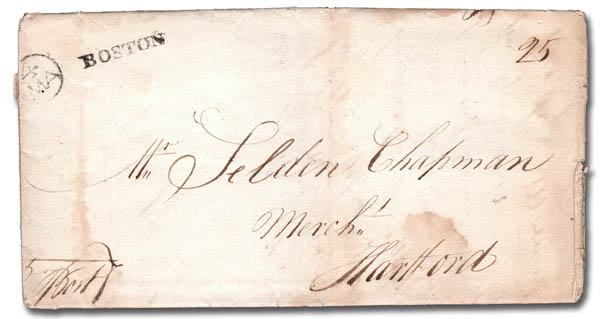 BOSTON
25
Mr Selden Chapman
Mercht
Hartford